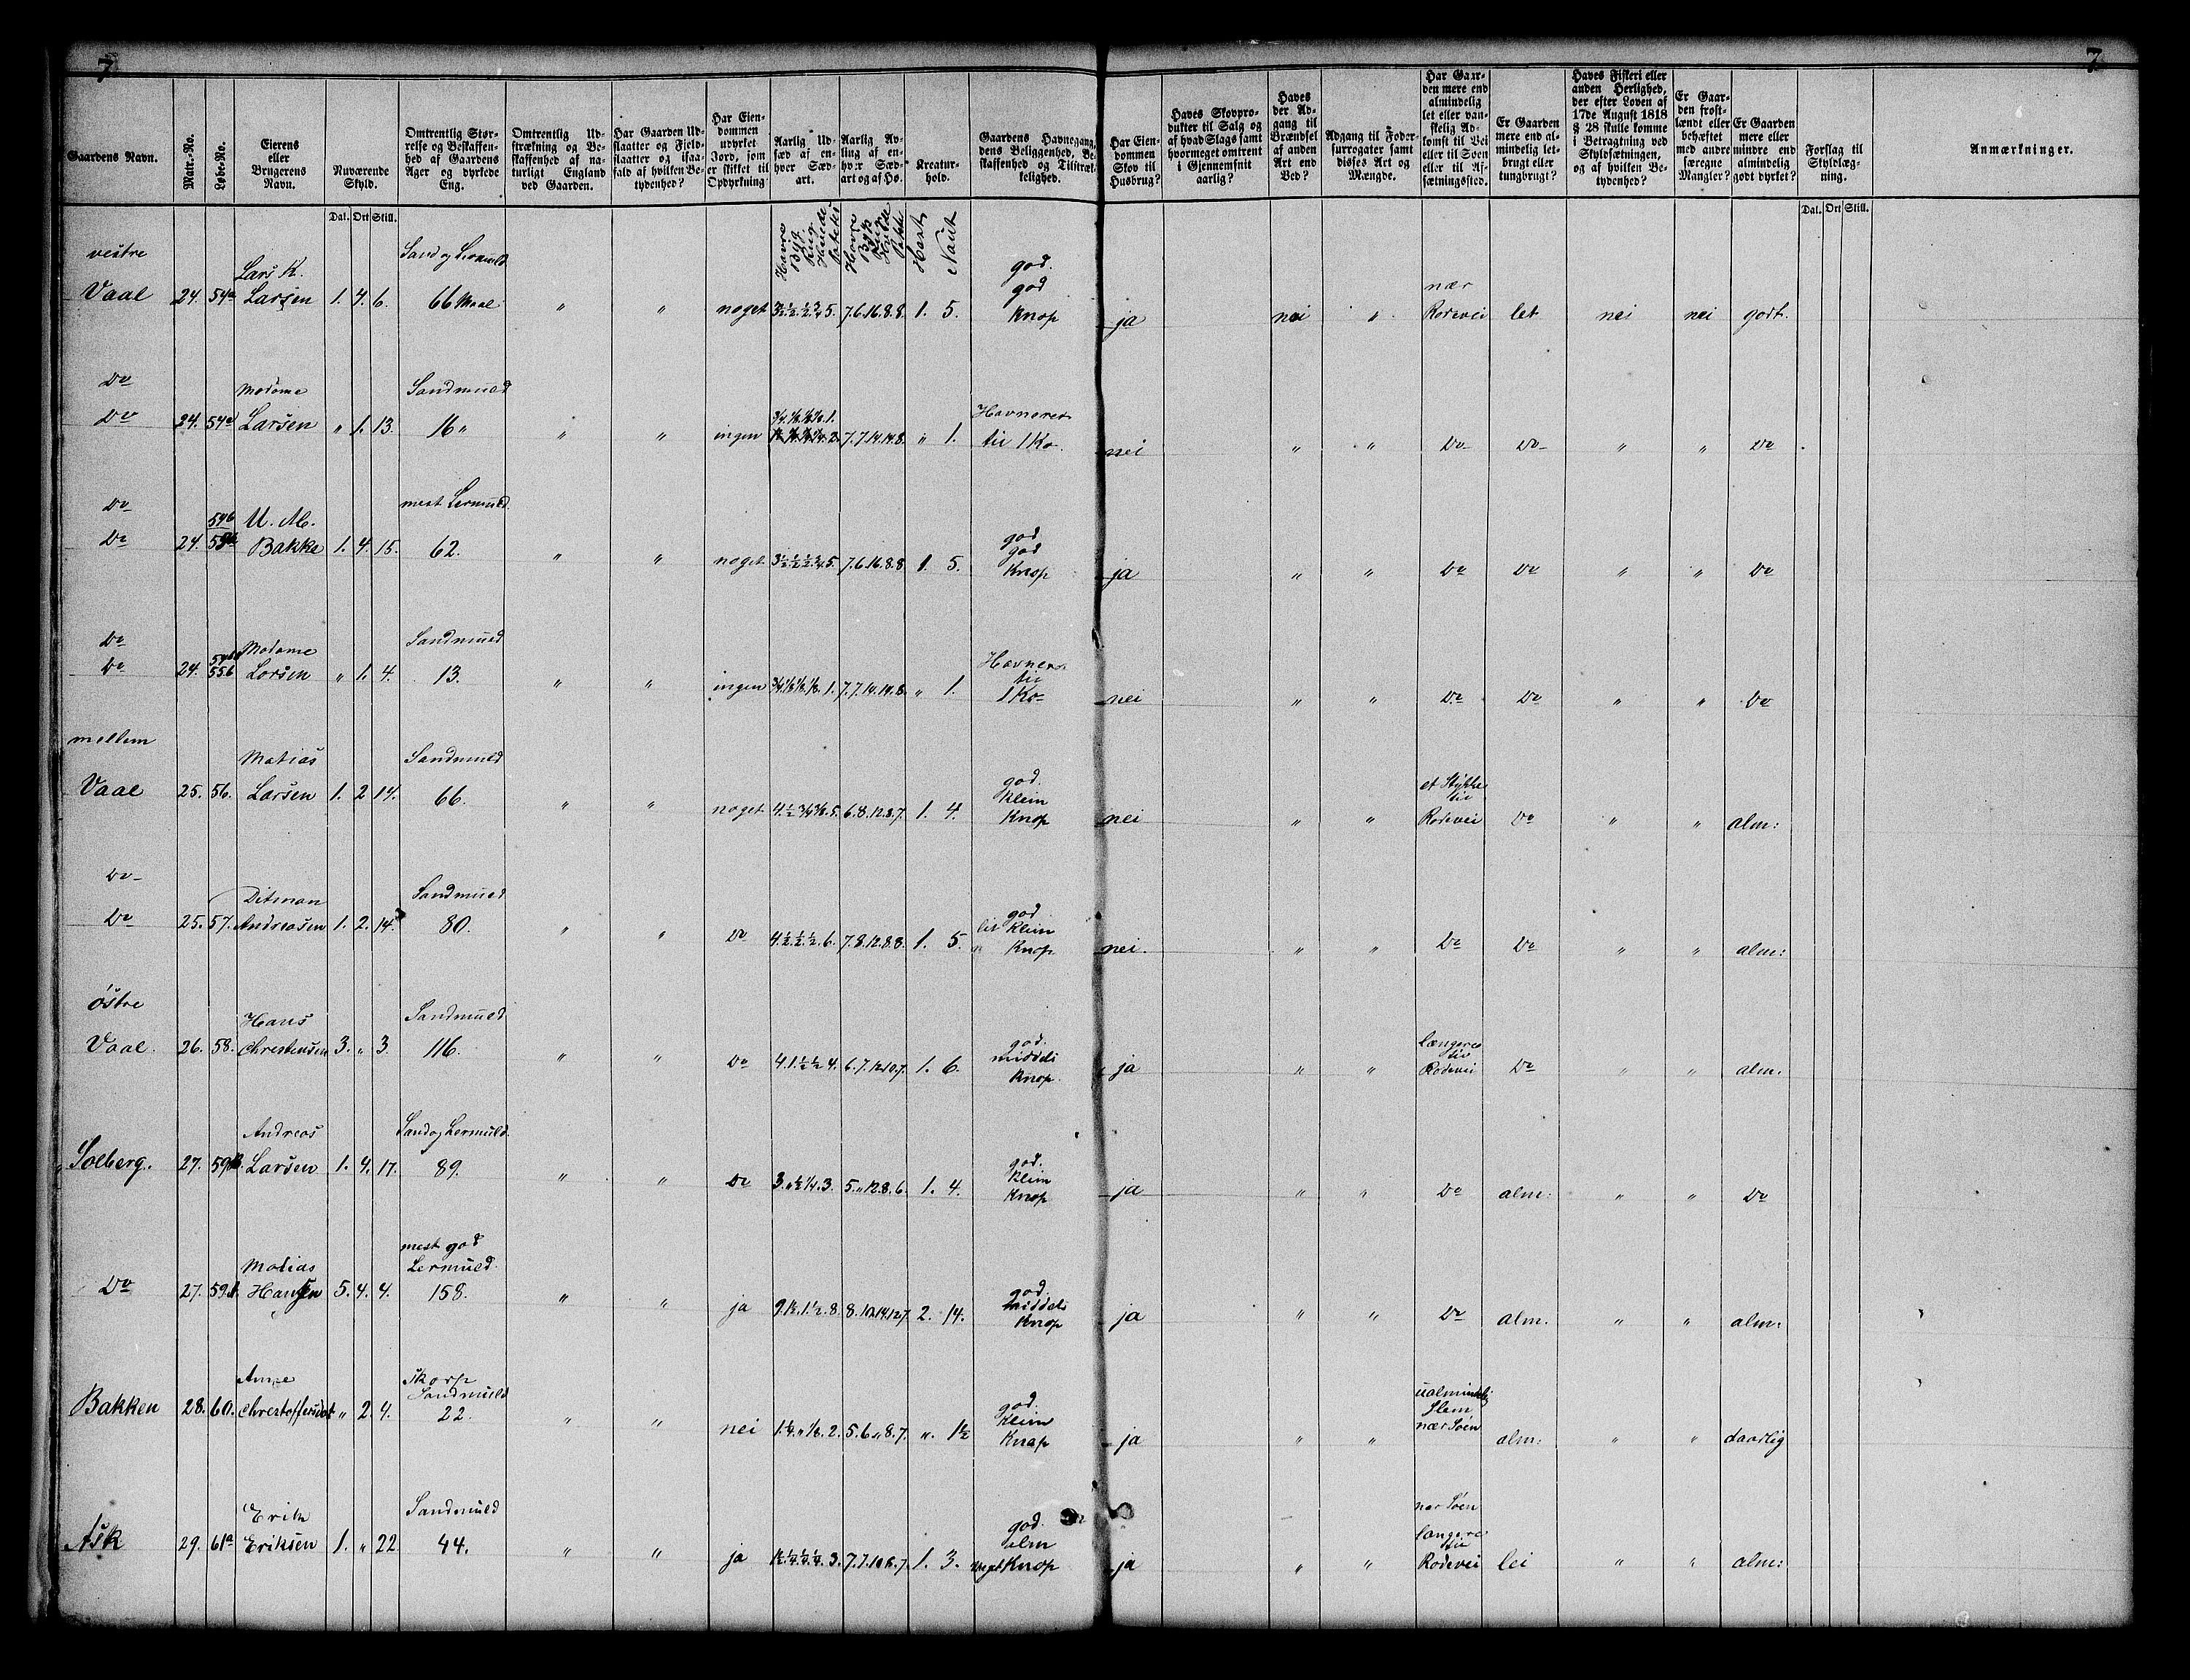 7
7
Gaardens Navn.
Matr.-No.
Løbe-No.
Eierens eller Brugerens Navn.
Nuværende Skyld.
Omtrentlig Størrelse og Beskaffenhed af Gaardens Ager og dyrkede Eng.
Omtrentlig Udstrækning og Beskaffenhed af naturligt England ved Gaarden.
Har Gaarden Udslaatter og Fieldslaatter og isaafald af hvilken Betydenhed?
Har Eiendommen udyrket Jord, som er skikket til Opdyrkning?
Aarlig Udsæd af enhver Sædart.
Aarlig Avling af enhver Sædart og af Hø.
Kreaturhold.
Gaardens Havnegang, dens Beliggenhed, Beskaffenhed og Tilstrækkelighed.
Har Eiendommen Skov til Husbrug?
Haves Skovprodukter til Salg og af hvad Slags samt hvormeget omtrent i Gjennemsnit aarlig?
Haves der Adgang til Brændsel af anden Art end Ved?
Adgang til Fodersurrogater samt disses Art og Mængde.
Har Gaarden mere end almindelig let eller vanskelig Adkomst til Vei eller til Søen eller til Afsætningssted.
Er Gaarden mere end almindelig letbrugt eller tungbrugt?
Haves Fiskeri eller anden Herlighed, der efter Loven af 17de August 1818 § 28 skulle komme i Betragtning ved Skyldsætningen, og af hvilken Betydenhed?
Er Gaarden frostlændt eller behæftet med andre særegne Mangler?
Er Gaarden mere eller mindre end almindelig godt dyrket?
Forslag til Skyldlægning.
Anmærkninger.
Dal. Ort Skill.
Dal. Ort Skill.
Havre Byg Rug
Hest Naut
vestre Vaal 24. 54a Lars K. Larsen 1. 4. 6. Sand og Lermuld 66 Maal " " noget 3½.½.½.¾.5. 7.6.16.8.8. 1. 5. god. god Knap ja nei " nær Rodevei let nei nei godt.
Do Do 24. 54a Madame Larsen " 1. 13. Sandmuld 16 " " " ingen 7.7.14.14.8. " 1. Havneret til 1 Ko. nei " " Do Do " " Do
Do Do 24. 54b U. M. Bakke 1. 4. 15. mest Lermuld 62. " " noget 3½.½.½.¾.5. 7.6.16.8.8 1. 5. god god Knap ja " " Do Do " " Do
Do Do 24. 55b Madame Larsen " 1. 4. Sandmuld 13. " " ingen 7.7.14.14.8. " 1. Havneret til 1 Ko nei " " Do Do " " Do
mellem Vaal 25. 56. Matias Larsen 1. 2 14. Sandmuld 66. " " noget 6.8.12.8.7. 1. 4. god. klein Knap nei " " et Stykke til Rodevei Do " " alm:
Do Do 25. 57. Ditman Andreasen 1. 2. 14. Sandmuld 80. " " Do 4.½.½.½.6. 7.8.12.8.8. 1. 5. god klein Knap nei. " " Do Do " " alm:
østre Vaal. 26. 58. Hans Christensen 3. " 3. Sandmuld 116. " " Do 4.1.½.½.4. 6.7.12.10.7. 1. 6. god. middels Knap. ja " " længere til Rodevei Do " " alm.
Solberg. 27. 59 Andreas Larsen 1. 4. 17. Sand og Lermuld 89. " " Do 3."½.¼.3. 5."12.8.6. 1. 4. god. klein Knap ja " " Do alm. " " Do
Do 27. 59 Matias Hansen 5. 4. 4. mest god Lermuld 158. " " ja 8.10.14.12.7. 2. 14. god. middels Knap ja " " Do alm. " " alm:
Bakken 28. 60. Anne Christoffersdat " 2. 4. Skarp Sandmuld 22. " " nei 5.6."8.7. ". 1½ god. klein Knap ja " " ualmindelig slem nær Søen alm: " " daarlig
Ask 29. 61a Erik Eriksen 1. " 22 Sandmuld 44. " " ja 1. 3. god. alm meget Knap ja " " nær Søen længere til Rodevei lei " " alm: